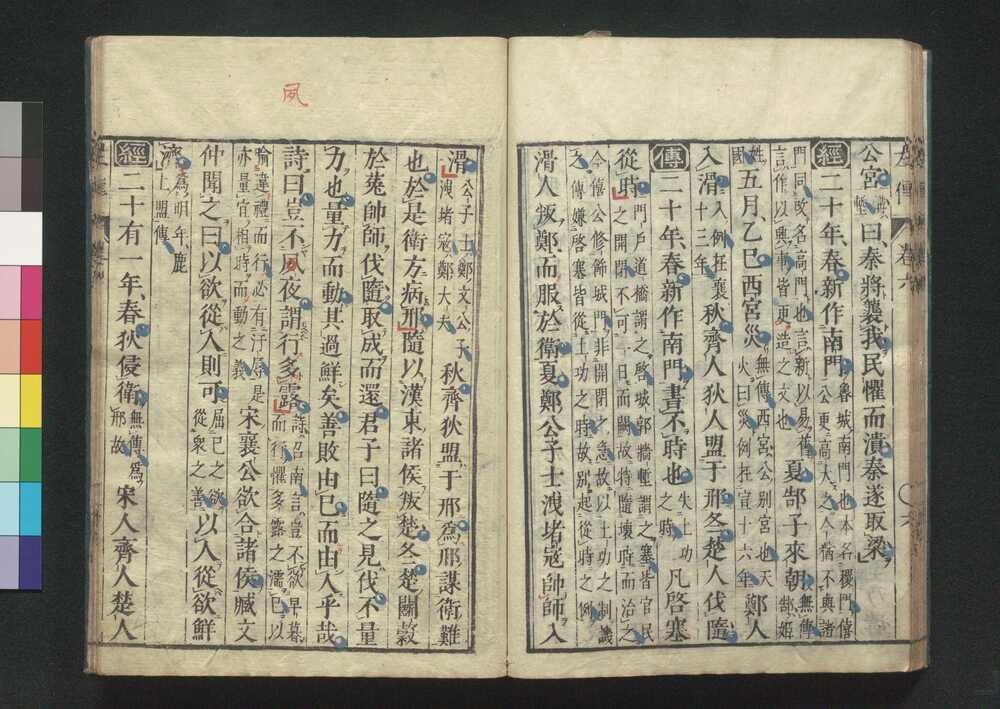 公宮塹溝曰秦將襲我民懼而潰秦遂取梁
經二十年春新作南門魯城南門也本名稷門僖公更高大之今猶不與諸
門同改名高門也言新以易舊言作以興事皆更造之文也夏郜子來朝無傳郜姬姓國
五月乙巳西宮災無傳西宮公別宮也天火曰災例在宣十六年鄭人
入滑入例在襄十三年秋齊人狄人盟于邢冬楚人伐隨
傳二十年春新作南門書不時也失土功之時凡啓塞
從時門戶道橋謂之啓城郭牆塹謂之塞皆官民之開閉不可一日而闕故特隨壞時而治之
今僖公修飾城門非開閉之急故以土功之制譏之傳嫌啓塞皆從土功之時故別起從時之例
滑人叛鄭而服於衛夏鄭公子士洩堵寇帥師入
夙
滑公子士鄭文公子洩堵寇鄭大夫秋齊狄盟于邢爲邢謀衛難
也於是衛方病邢隨以漢東諸侯叛楚冬楚鬬穀
於菟帥師伐隨取成而還君子曰隨之見伐不量
力也量力而動其過鮮矣善敗由已而由人乎哉
詩曰豈不夙夜謂行多露詩召南言豈不欲早暮而行懼多露之濡已以
喻違禮而行必有汙辱是亦量宜相時而動之義宋襄公欲合諸侯臧文
仲聞之曰以欲從人則可屈已之欲從衆之善以人從欲鮮
濟爲明年鹿上盟傳
經二十有一年春狄侵衛無傳爲邢故宋人齊人楚人